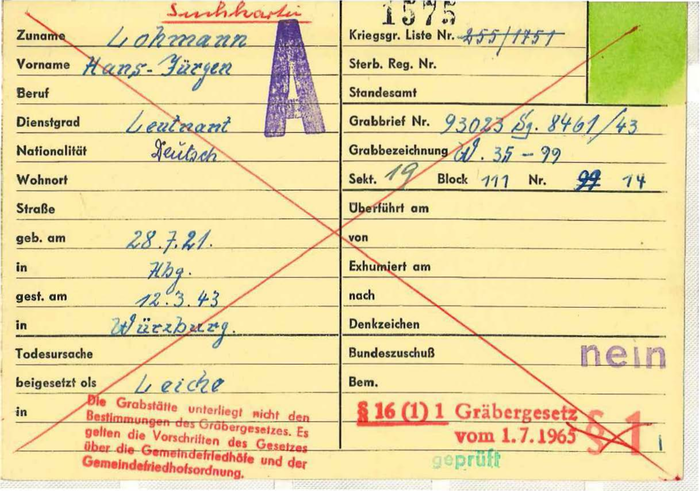 Suchkartei
1575
Zuname Lohmann
Vorname Hans-Jürgen
A
Beruf
Dienstgrad Leutnant
Nationalität Deutsch
Wohnort
Straße
geb. am 28.7.21.
in Hbg.
gest. am 12.3.43
in Würzburg.
Todesursache
beigesetzt als Leiche
in
Die Grabstätte unterliegt nicht den
Bestimmungen des Gräbergesetzes. Es
gelten die Vorschriften des Gesetzes
über die Gemeindefriedhöfe und der
Gemeindefriedhofsordnung.
Kriegsgr. Liste Nr. 255/1751
Sterb. Reg. Nr.
Standesamt
Grabbrief Nr. 93023 Lg. 8461/43
Grabbezeichnung W. 35-99
Sekt. 19 Block 111 Nr. 99 14
Überführt am
von
Exhumiert am
nach
Denkzeichen
Bundeszuschuß nein
Bem.
§ 16 (1) 1 Gräbergesetz
vom 1.7.1965
§ 1
geprüft